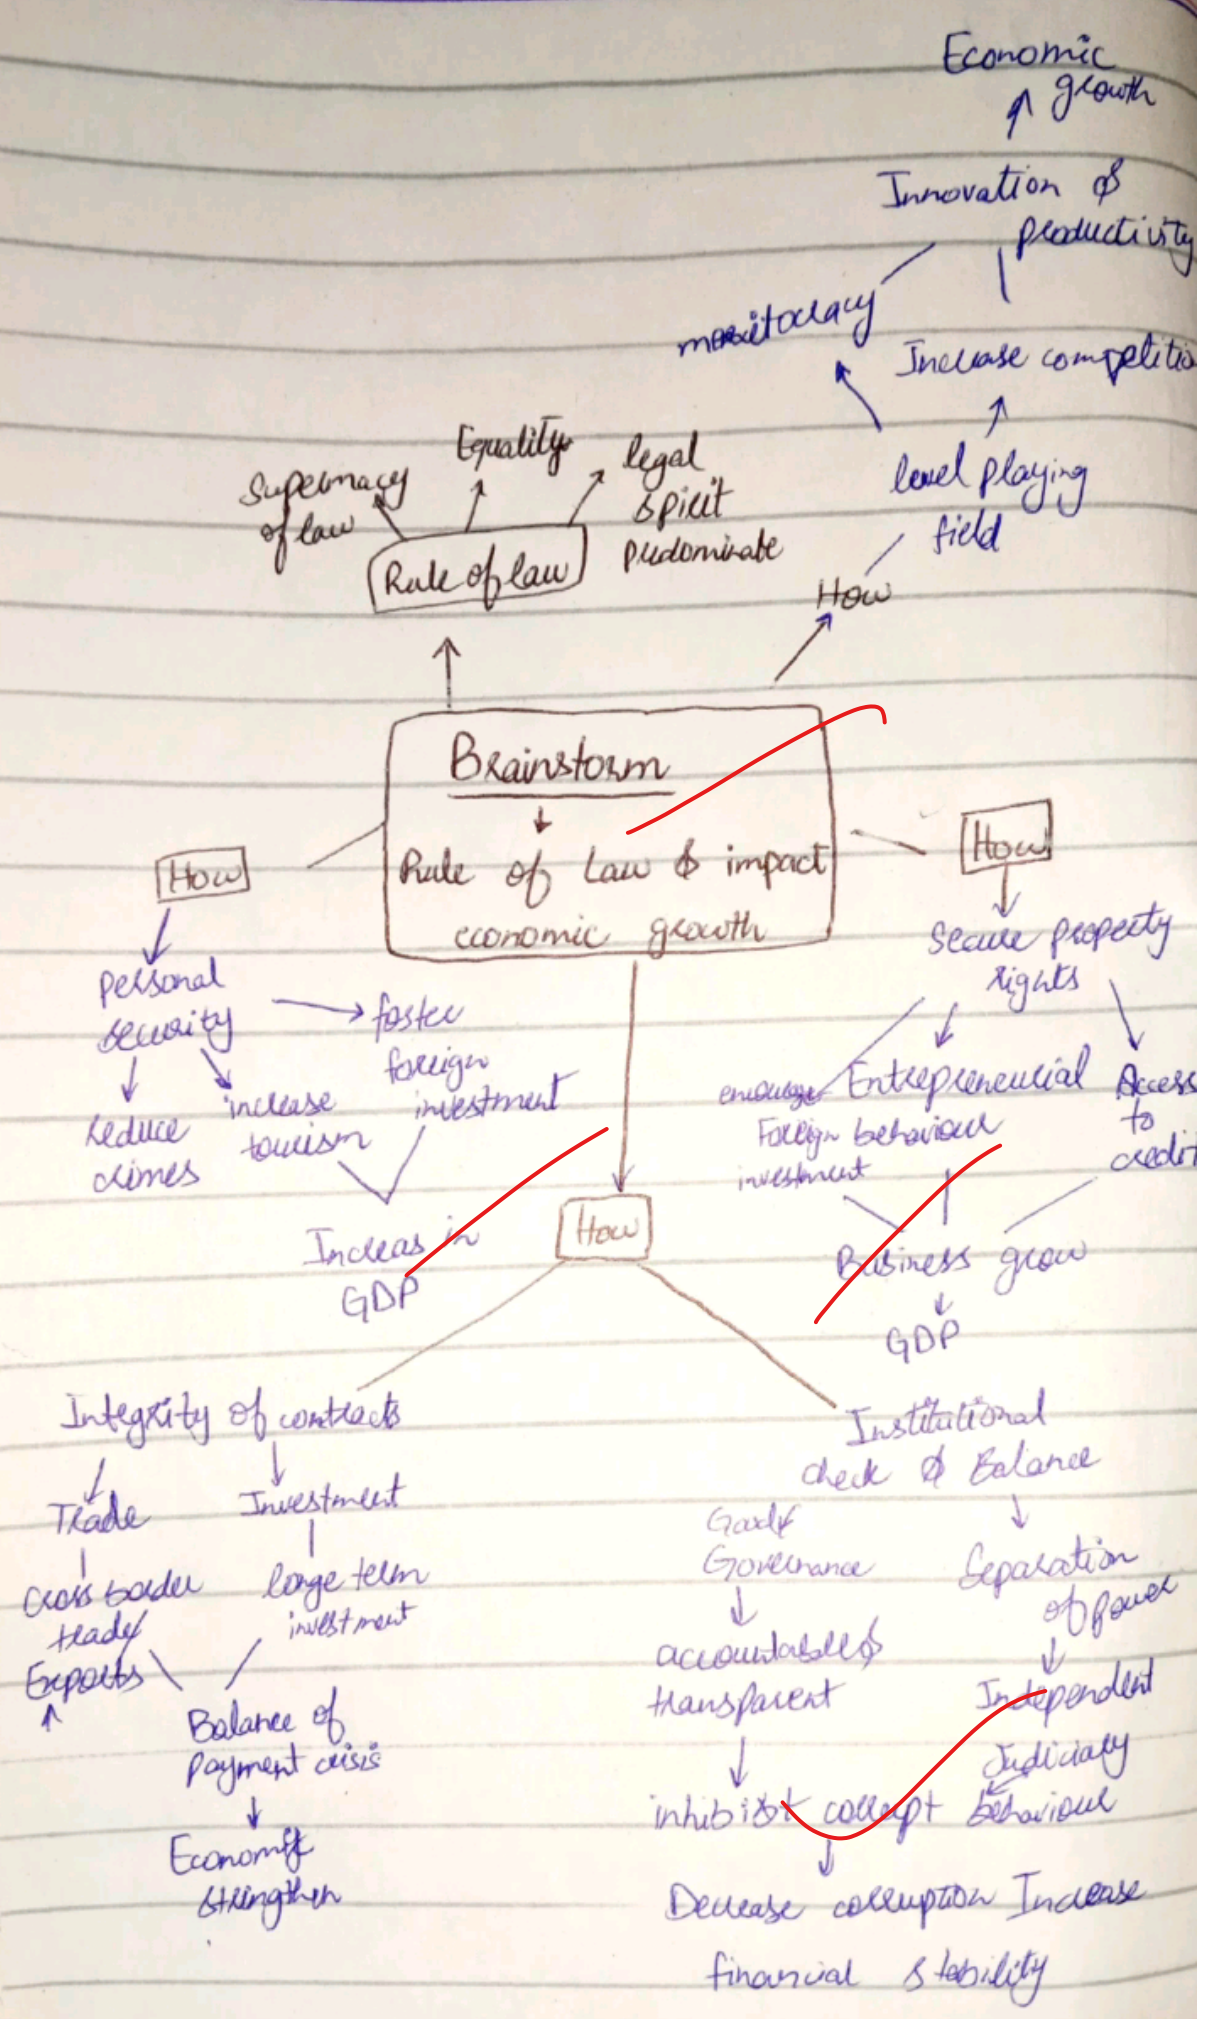 Economic
growth
Innovation &
productivity
meritocracy
Increase competitio
level playing
field
How
Equality
legal
spirit
predominate
Supermacy
of law
Rule of law
Brainstorm
Rule of Law & impact
economic growth
How
Personal
security
foster
foreign
investment
reduce
crimes
increase
tourism
Increas in
GDP
How
Secure property
rights
encourage
Foreign
investment
Entrepreneurial
behaviour
Access
to
credit
Business grow
GDP
How
Integrity of contracts
Trade
Cross border
trade
Exports
Investment
longe term
investment
Balance of
payment crisis
Economic
stringthen
Institutional
check & Balance
Good
Governance
accountable &
transparent
Separation
of power
Independent
Judiciary
inhibit corrupt behaviour
Decrease corruption Increase
financial stability